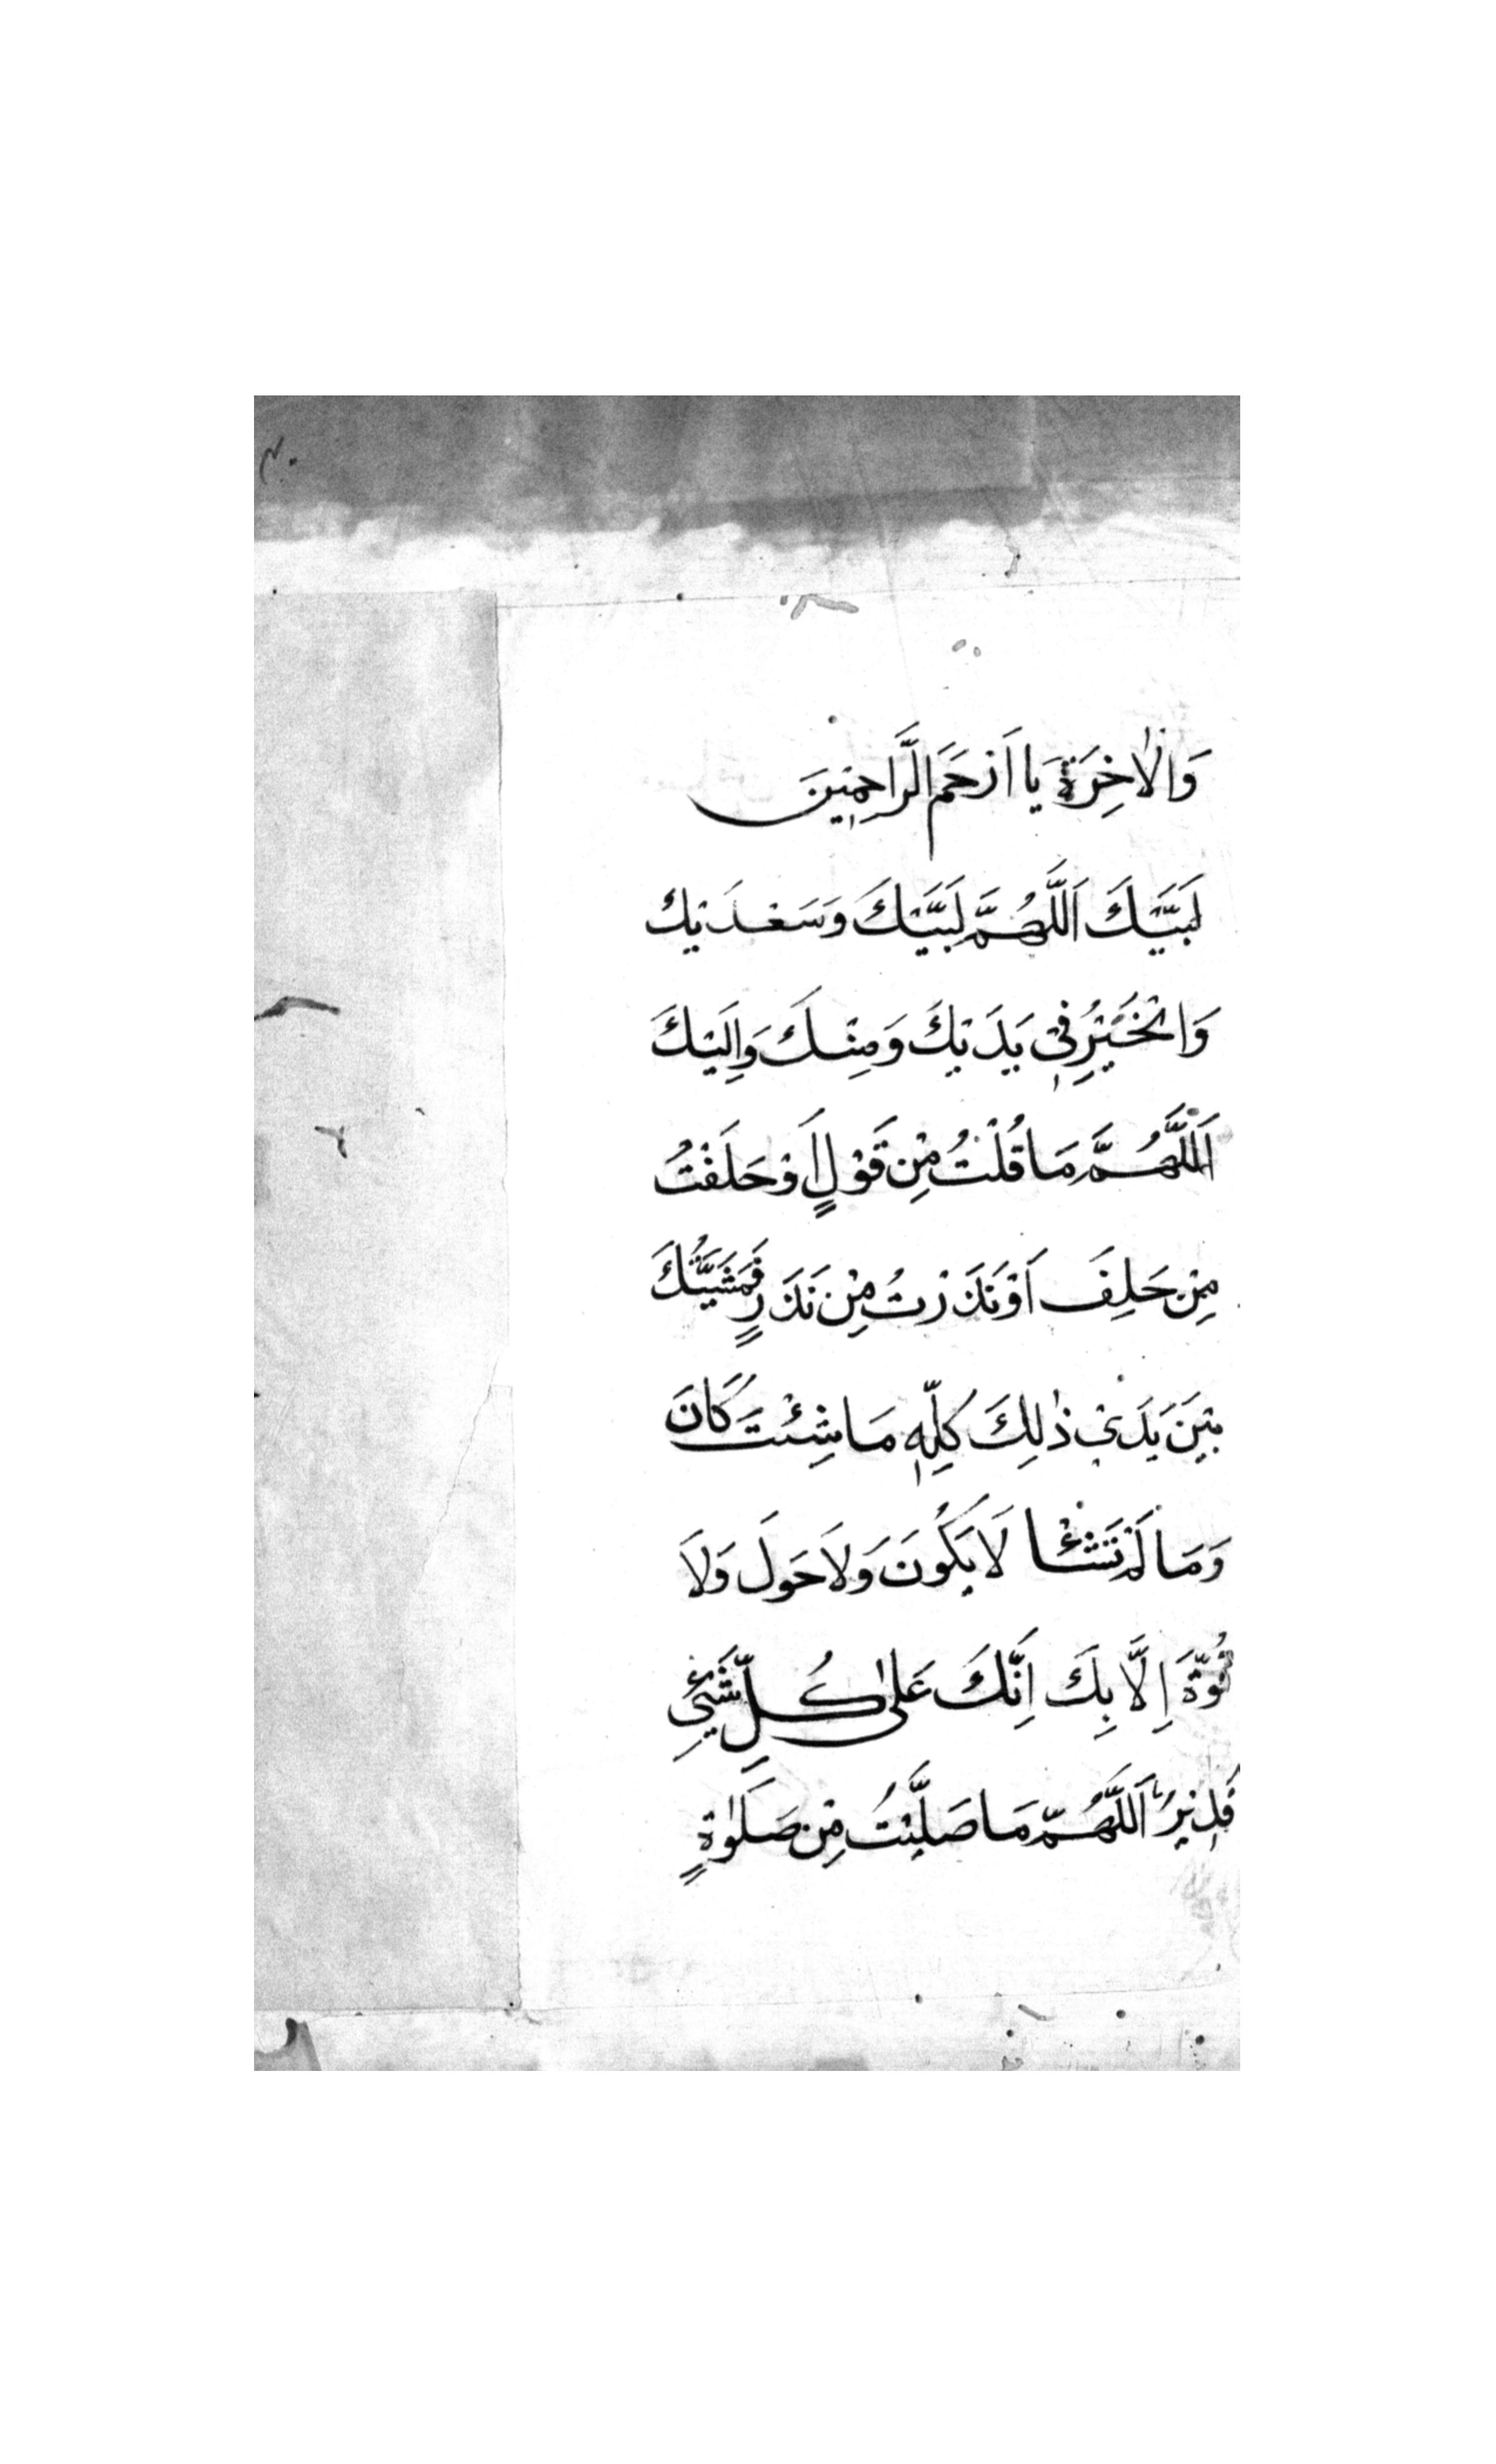 وَالْاٰخِرَةِ يَا اَرْحَمَ الرَّاحِمِيْنَ
لَبَّيْكَ اَللّٰهُمَّ لَبَّيْكَ وَسَعْدَيْكَ
وَالْخَيْرُ فِيْ يَدَيْكَ وَمِنْكَ وَاِلَيْكَ
اَللّٰهُمَّ مَا قُلْتُ مِنْ قَوْلٍ اَوْ حَلَفْتُ
مِنْ حَلِفَ اَوْ نَذَرْتُ مِنْ نَذَرٍ فَمَشِيَّتُكَ
بَيْنَ يَدَيْ ذٰلِكَ كُلِّهِ مَا شِئْتَ كَانَ
وَمَا لَمْ تَشَئْا لَا يَكُونَ وَلَا حَولَ وَلَا
قُوَّةَ اِلَّا بِكَ اِنَّكَ عَلٰى كُلِّ شَيْئٍ
قَدِيْرٌ اَللّٰهُمَّ مَا صَلَّيْتُ مِنْ صَلٰوةٍ